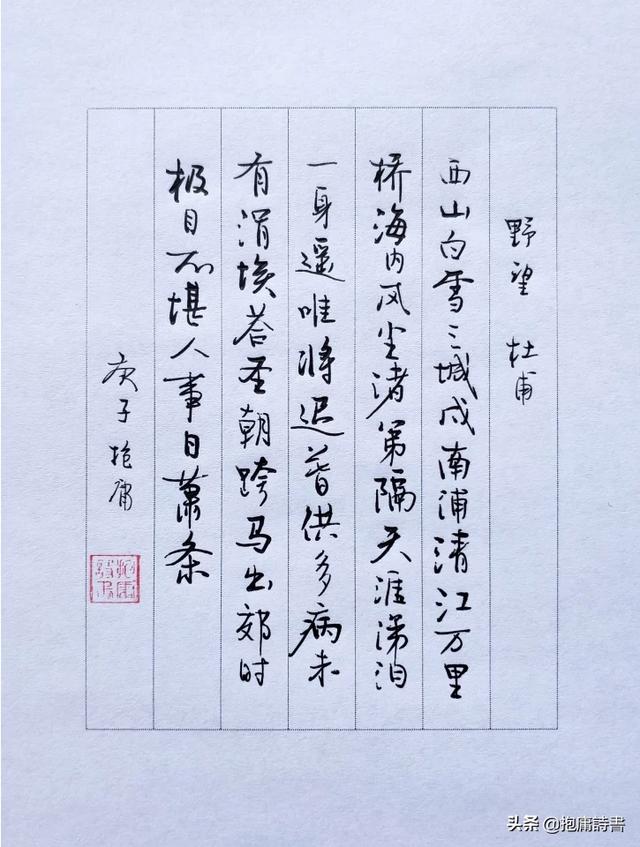 野望 杜甫
西山白雪三城戍南浦清江万里
桥海内风尘诸弟隔天涯涕泪
一身遥唯将迟暮供多病未
有涓埃答圣朝跨马出郊时
极目不堪人事日萧条
庚子抱庸
头条 @抱庸詩書